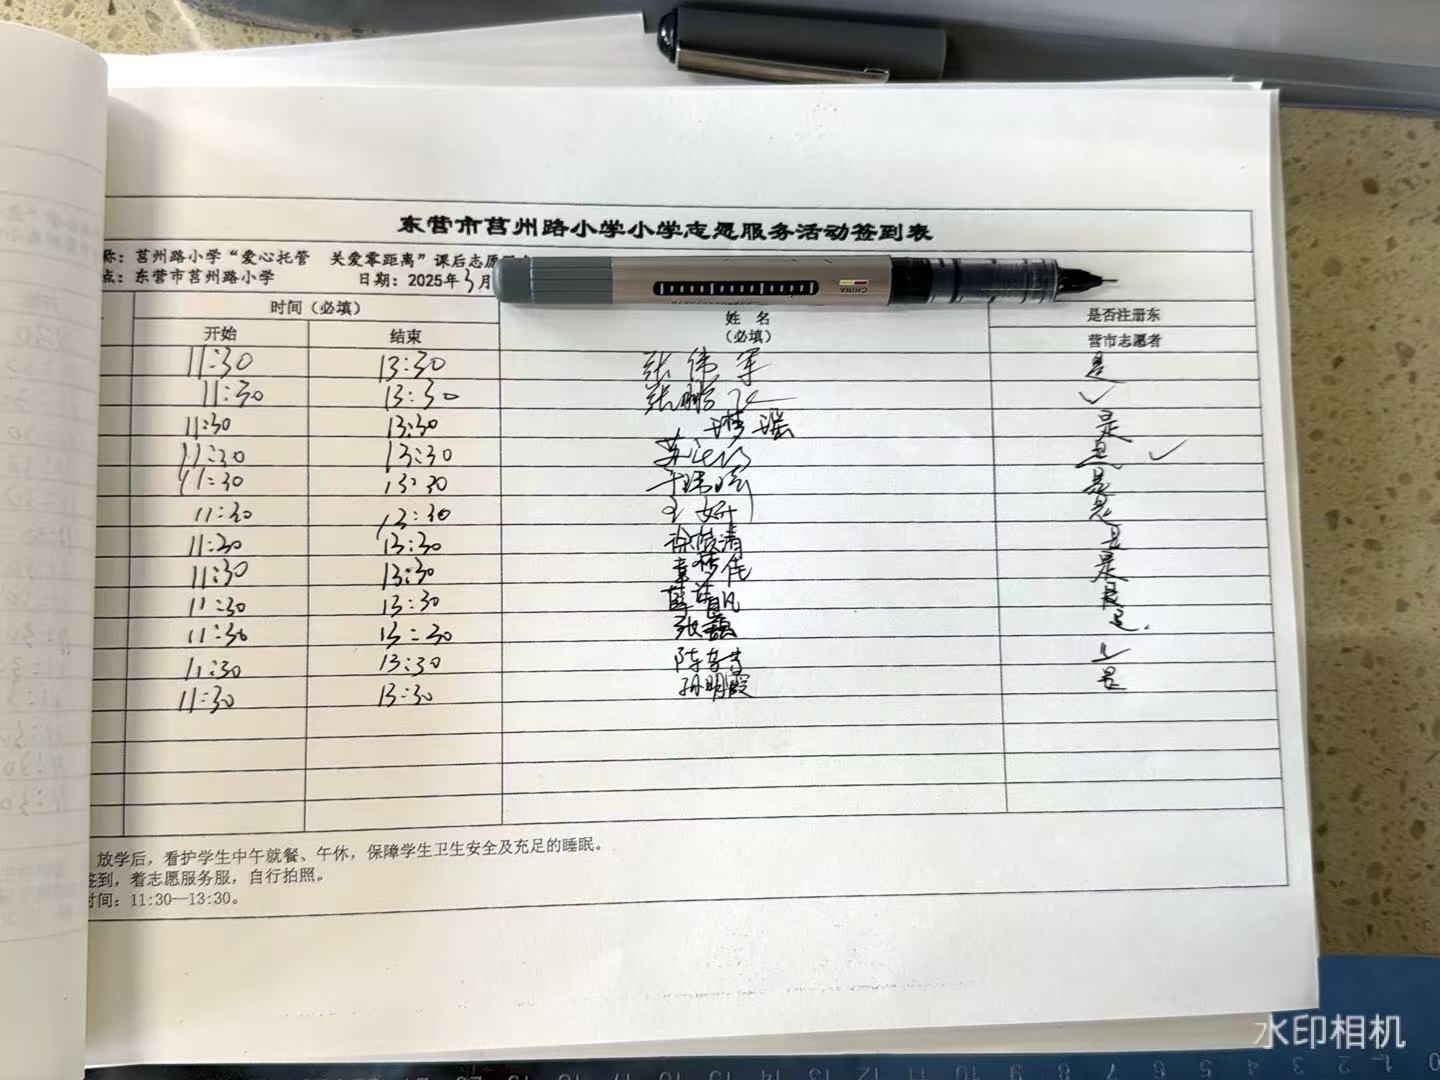 东营市莒州路小学小学志愿服务活动签到表
称：莒州路小学“爱心托管 关爱零距离”课后志愿
点：东营市莒州路小学 日期：2025年3月
时间（必填） 姓 名 是否注册东
开始 结束 （必填） 营市志愿者
11:30 13:30 张伟军 是
11:30 13:30 张鹏飞 ✓
11:30 13:30 梦瑶 是
11:30 13:30 是 ✓
11:30 13:30 是
11:30 13:30 王妍 是
11:30 13:30 是
11:30 13:30 袁梦佳 是
11:30 13:30 是
11:30 13:30 张磊 是.
11:30 13:30
11:30 13:30 孙明霞 是
放学后，看护学生中午就餐、午休，保障学生卫生安全及充足的睡眠。
签到，着志愿服务服，自行拍照。
时间：11:30—13:30。
CHINA
水印相机